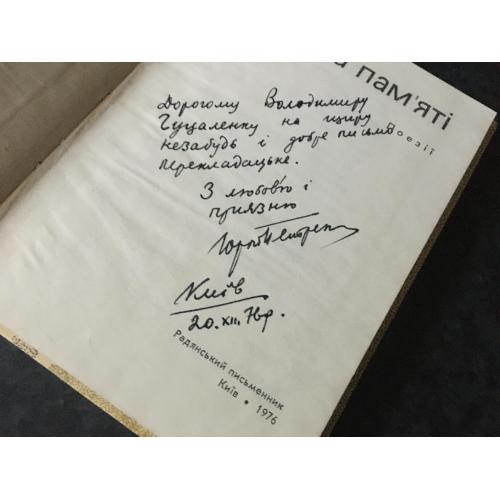 пам'яті
поезії
Дорогому Володимиру
Гуцаленку на щиру
незабудь і добре письмо
перекладацьке.
З любов'ю і
приязню
Київ
20. XII. 76р.
Радянський письменник
Київ • 1976